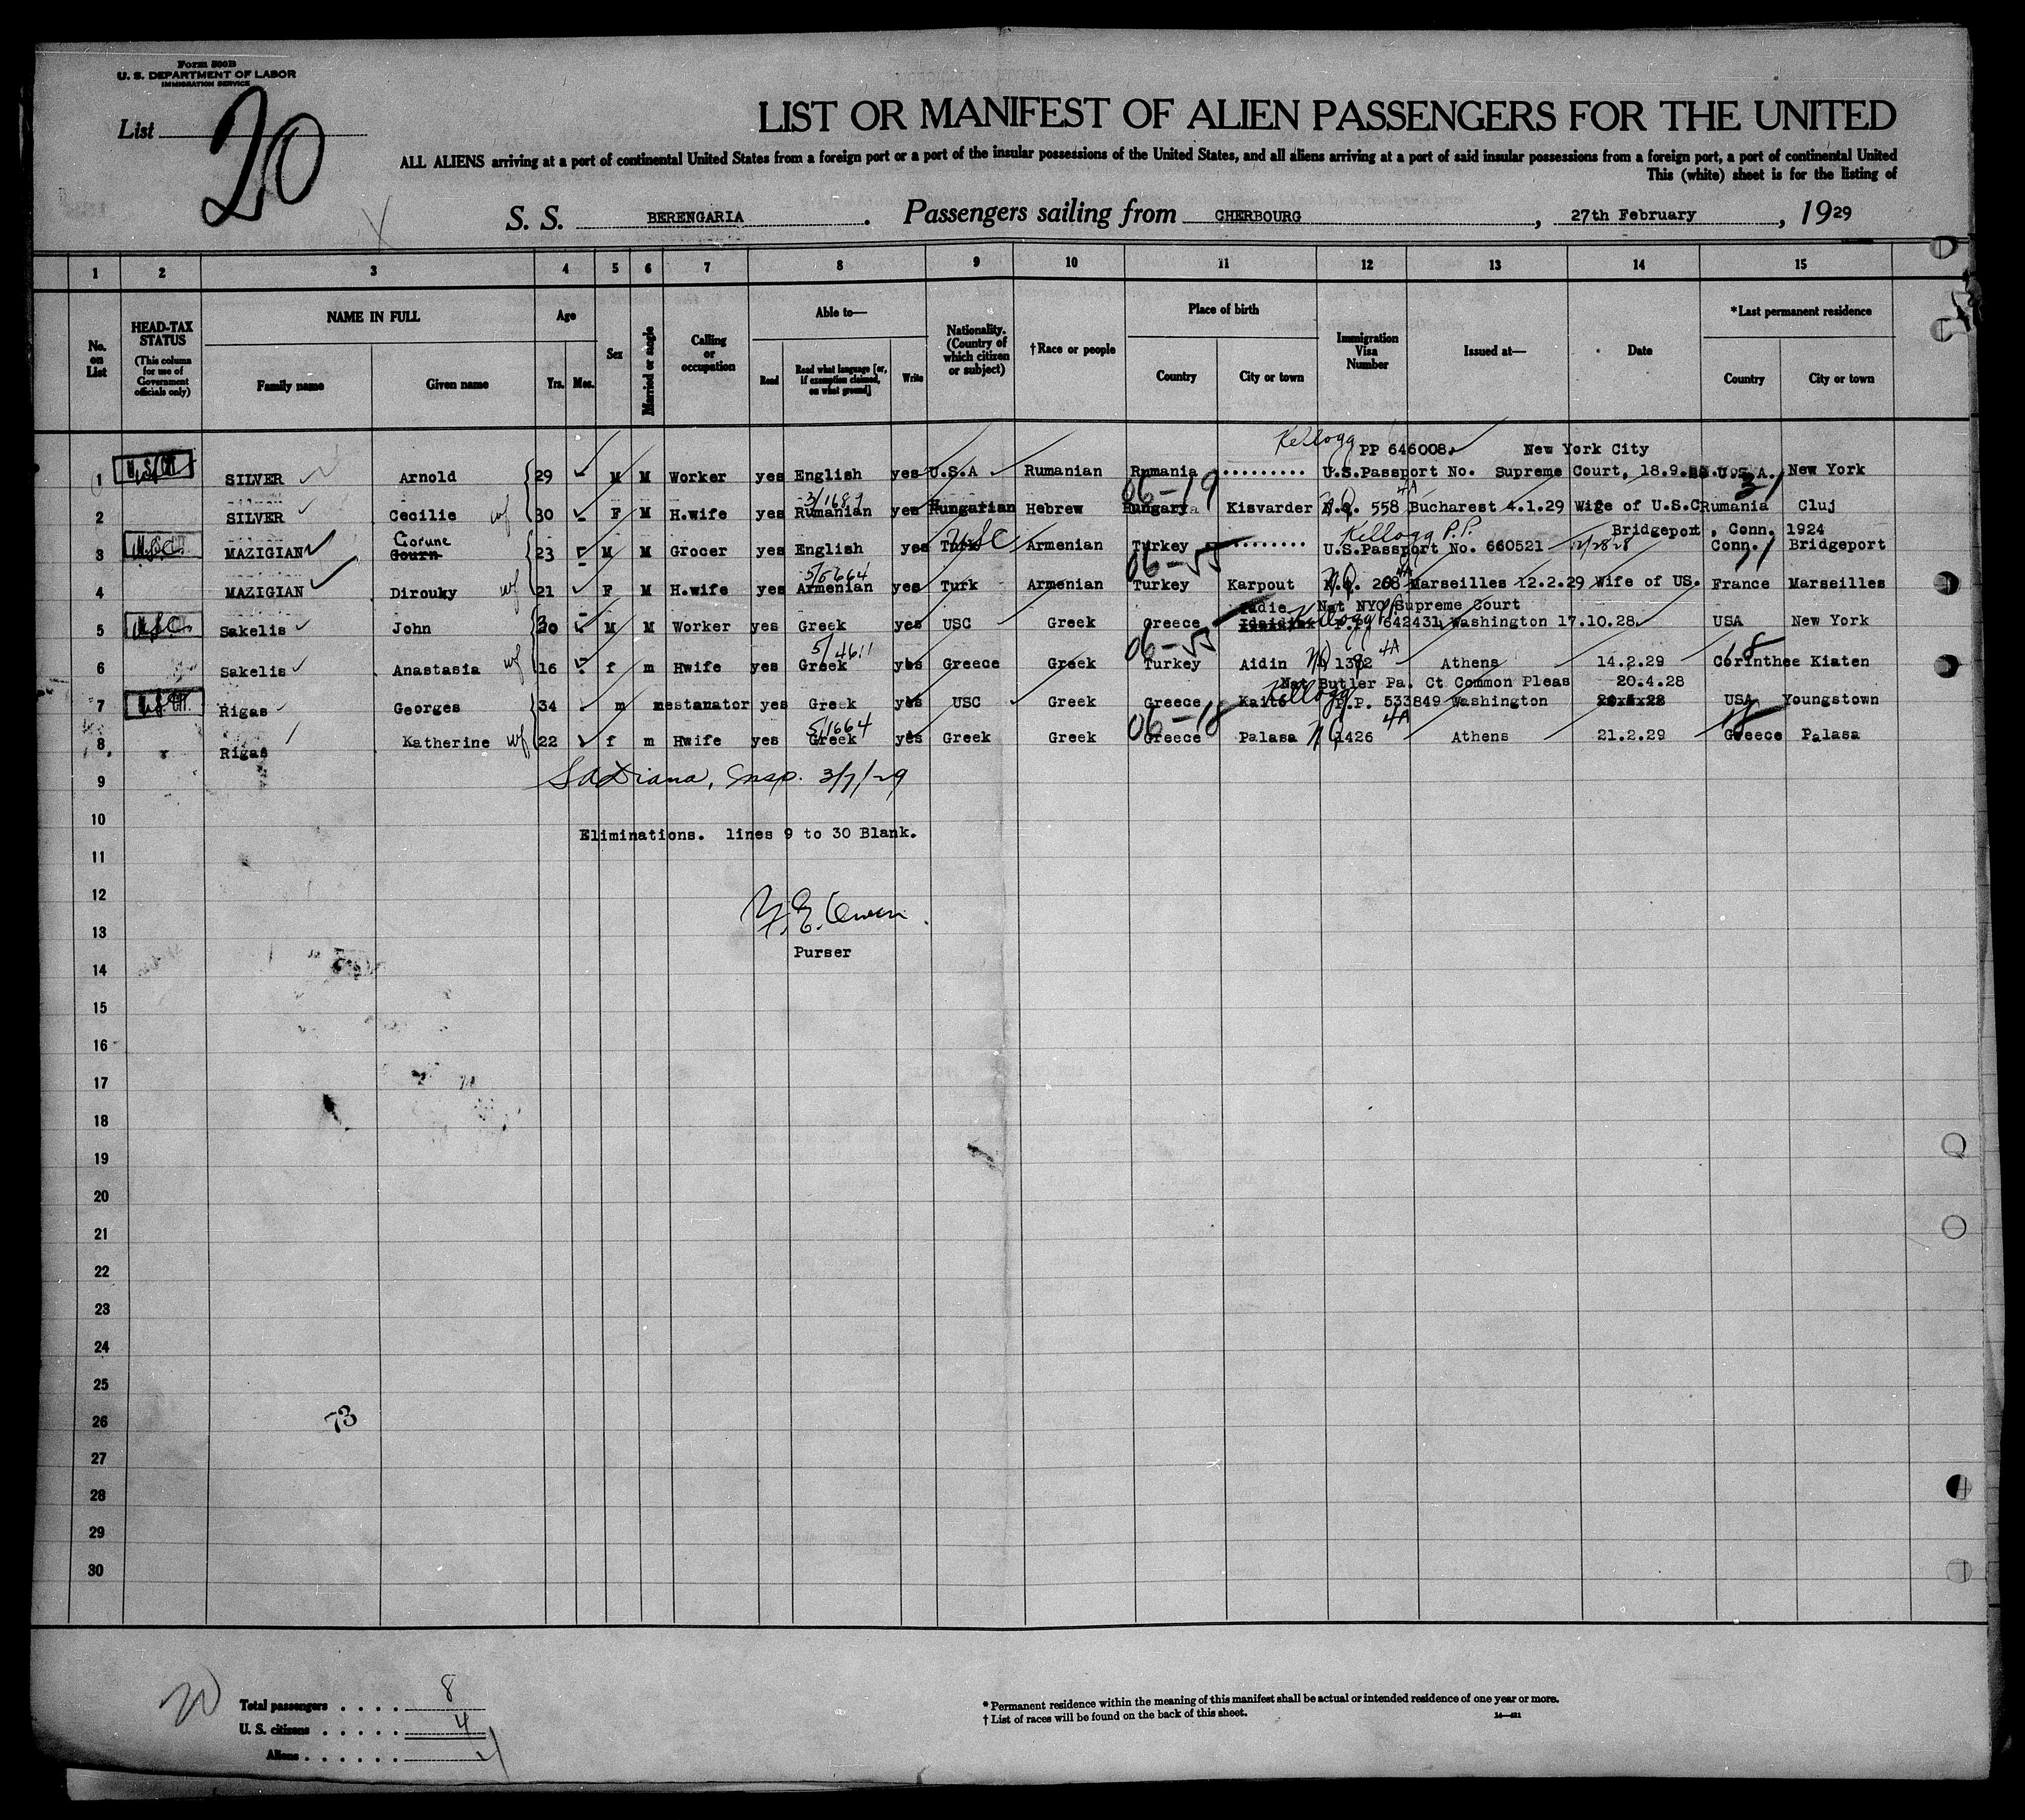 Form 500B
U. S. DEPARTMENT OF LABOR
IMMIGRATION SERVICE
List 20
LIST OR MANIFEST OF ALIEN PASSENGERS FOR THE UNITED
ALL ALIENS arriving at a port of continental United States from a foreign port or a port of the insular possessions of the United States, and all aliens arriving at a port of said insular possessions from a foreign port, a port of continental United
This (white) sheet is for the listing of
S. S. BERENGARIA. Passengers sailing from CHERBOURG, 27th February, 1929
1 2 3 4 5 6 7 8 9 10 11 12 13 14 15
No. on List
HEAD-TAX STATUS (This column for use of Government officials only)
NAME IN FULL Family name Given name
Age Yrs. Mos.
Sex
Married or single
Calling or occupation
Able to— Read Read what language [or, if exemption claimed, on what ground] Write
Nationality. (Country of which citizen or subject)
†Race or people
Place of birth Country City or town
Immigration Visa Number
Issued at—
Date
*Last permanent residence Country City or town
Kellogg PP 646008 New York City
1 SILVER Arnold 29 - M M Worker yes English yes U.S.A Rumanian Rumania .......... U.S.Passport No. Supreme Court, 18.9. U.S.A. New York
3/1687 06-19 4A 31
2 SILVER Cecilie wf 30 - F M H.wife yes Rumanian yes Hungarian Hebrew Hungary Kisvarder N.Q. 558 Bucharest 4.1.29 Wife of U.S.C Rumania Cluj
Corune USC Kellogg P.P. Bridgeport, Conn. 1924
3 U.S.C. MAZIGIAN Gourn 23 - M M Grocer yes English yes Turk Armenian Turkey .......... U.S.Passport No. 660521 Conn. Bridgeport
5/5664 06-55 4A
4 MAZIGIAN Dirouky wf 21 F M H.wife yes Armenian yes Turk Armenian Turkey Karpout N.Q. 268 Marseilles 12.2.29 Wife of US. France Marseilles
Iadie Nat NYC Supreme Court
5 U.S.C. Sakelis John 30 M M Worker yes Greek yes USC Greek Greece Kellogg P.P. 642431 Washington 17.10.28 USA New York
5/4611 06-55 4A 18
6 Sakelis Anastasia wf 16 f m Hwife yes Greek yes Greece Greek Turkey Aidin NQ 1392 Athens 14.2.29 Corinthee Kiaten
Nat Butler Pa. Ct Common Pleas 20.4.28
7 Rigas Georges 34 m mestanator yes Greek yes USC Greek Greece Kaito Kellogg P.P. 533849 Washington USA Youngstown
5/1664 06-18 4A 18
8 Rigas Katherine wf 22 f m Hwife yes Greek yes Greek Greek Greece Palasa NQ 1426 Athens 21.2.29 Greece Palasa
9 Insp. 3/7/29
10 Eliminations. lines 9 to 30 Blank.
11
12
13
Purser
14
15
16
17
18
19
20
21
22
23
24
25
26 73
27
28
29
30
20
Total passengers . . . . 8
U. S. citizens . . . . . 4
Aliens . . . . . . 4
* Permanent residence within the meaning of this manifest shall be actual or intended residence of one year or more.
† List of races will be found on the back of this sheet.